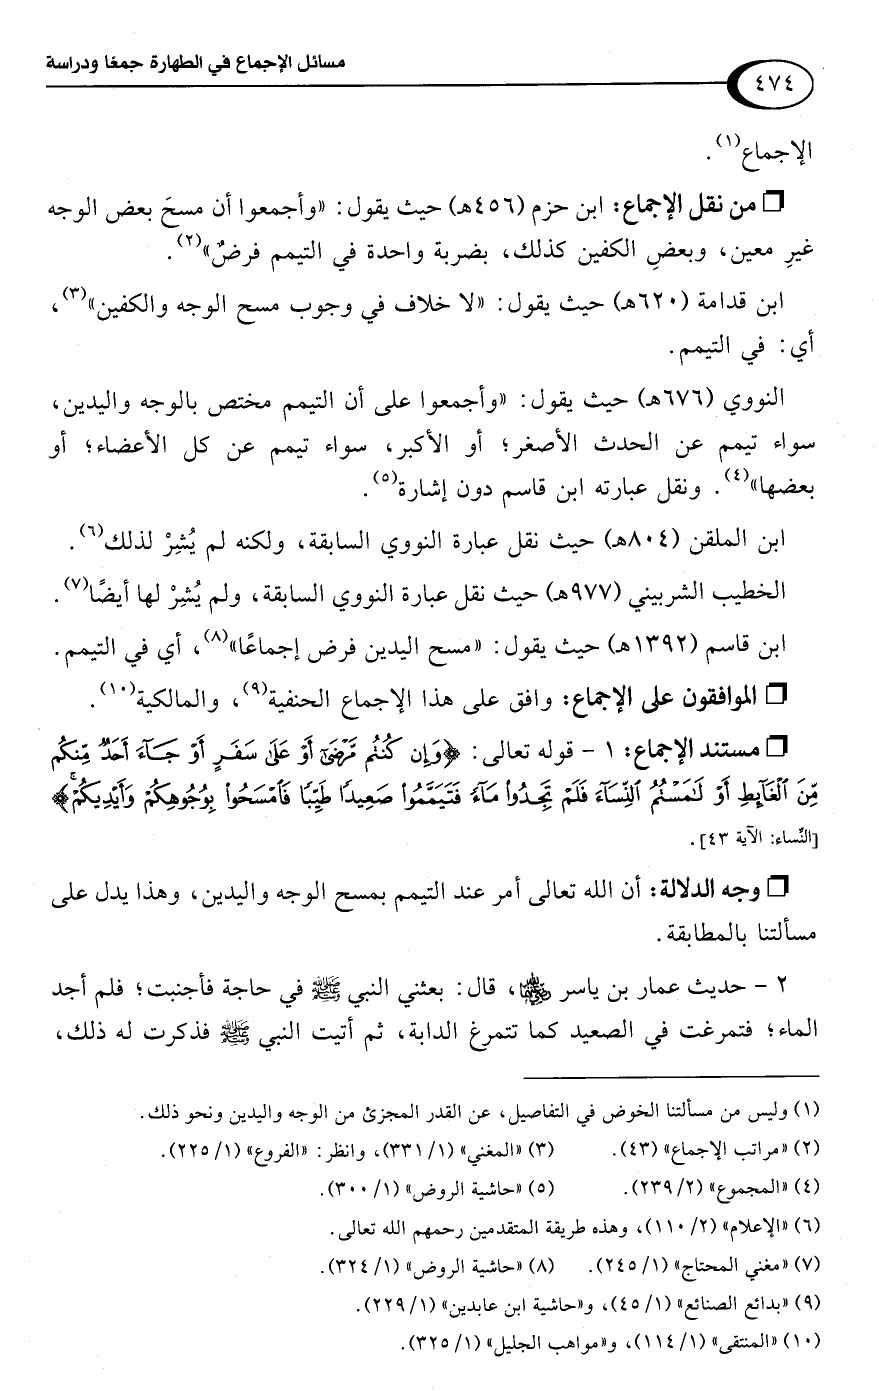 مسائل الإجماع في الطهارة جمعًا ودراسة
٤٧٤
الإجماع(١).
❒ من نقل الإجماع: ابن حزم (٤٥٦هـ) حيث يقول: «وأجمعوا أن مسحَ بعض الوجه
غيرِ معين، وبعضِ الكفين كذلك، بضربة واحدة في التيمم فرضٌ»(٢).
ابن قدامة (٦٢٠هـ) حيث يقول: «لا خلاف في وجوب مسح الوجه والكفين»(٣)،
أي: في التيمم.
النووي (٦٧٦هـ) حيث يقول: «وأجمعوا على أن التيمم مختص بالوجه واليدين،
سواء تيمم عن الحدث الأصغر؛ أو الأكبر، سواء تيمم عن كل الأعضاء؛ أو
بعضها»(٤). ونقل عبارته ابن قاسم دون إشارة(٥).
ابن الملقن (٨٠٤هـ) حيث نقل عبارة النووي السابقة، ولكنه لم يُشِرْ لذلك(٦).
الخطيب الشربيني (٩٧٧هـ) حيث نقل عبارة النووي السابقة، ولم يُشِرْ لها أيضًا(٧).
ابن قاسم (١٣٩٢هـ) حيث يقول: «مسح اليدين فرض إجماعًا»(٨)، أي في التيمم.
❒ الموافقون على الإجماع: وافق على هذا الإجماع الحنفية(٩)، والمالكية(١٠).
❒ مستند الإجماع: ١ - قوله تعالى: ﴿وَإِن كُنتُم مَّرْضَىٰٓ أَوْ عَلَىٰ سَفَرٍ أَوْ جَآءَ أَحَدٌ مِّنكُم
مِّنَ ٱلْغَآئِطِ أَوْ لَـٰمَسْتُمُ ٱلنِّسَآءَ فَلَمْ تَجِدُوا۟ مَآءً فَتَيَمَّمُوا۟ صَعِيدًا طَيِّبًا فَٱمْسَحُوا۟ بِوُجُوهِكُمْ وَأَيْدِيكُمْ ۗ﴾
[النِّساء: الآية ٤٣].
❒ وجه الدلالة: أن الله تعالى أمر عند التيمم بمسح الوجه واليدين، وهذا يدل على
مسألتنا بالمطابقة.
٢ - حديث عمار بن ياسر رضي الله عنه، قال: بعثني النبي ﷺ في حاجة فأجنبت؛ فلم أجد
الماء؛ فتمرغت في الصعيد كما تتمرغ الدابة، ثم أتيت النبي ﷺ فذكرت له ذلك،
(١) وليس من مسألتنا الخوض في التفاصيل، عن القدر المجزئ من الوجه واليدين ونحو ذلك.
(٢) «مراتب الإجماع» (٤٣). (٣) «المغني» (١/ ٣٣١)، وانظر: «الفروع» (١/ ٢٢٥).
(٤) «المجموع» (٢/ ٢٣٩). (٥) «حاشية الروض» (١/ ٣٠٠).
(٦) «الإعلام» (٢/ ١١٠)، وهذه طريقة المتقدمين رحمهم الله تعالى.
(٧) «مغني المحتاج» (١/ ٢٤٥). (٨) «حاشية الروض» (١/ ٣٢٤).
(٩) «بدائع الصنائع» (١/ ٤٥)، و«حاشية ابن عابدين» (١/ ٢٢٩).
(١٠) «المنتقى» (١/ ١١٤)، و«مواهب الجليل» (١/ ٣٢٥).